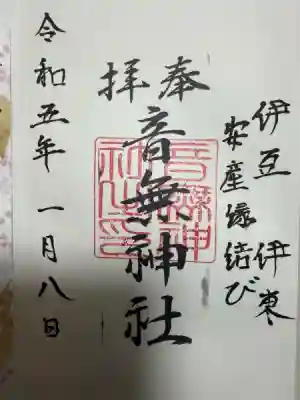 伊豆 伊東
安産縁結び
奉拝
音無神社
音無神社印
令和五年 一月八日